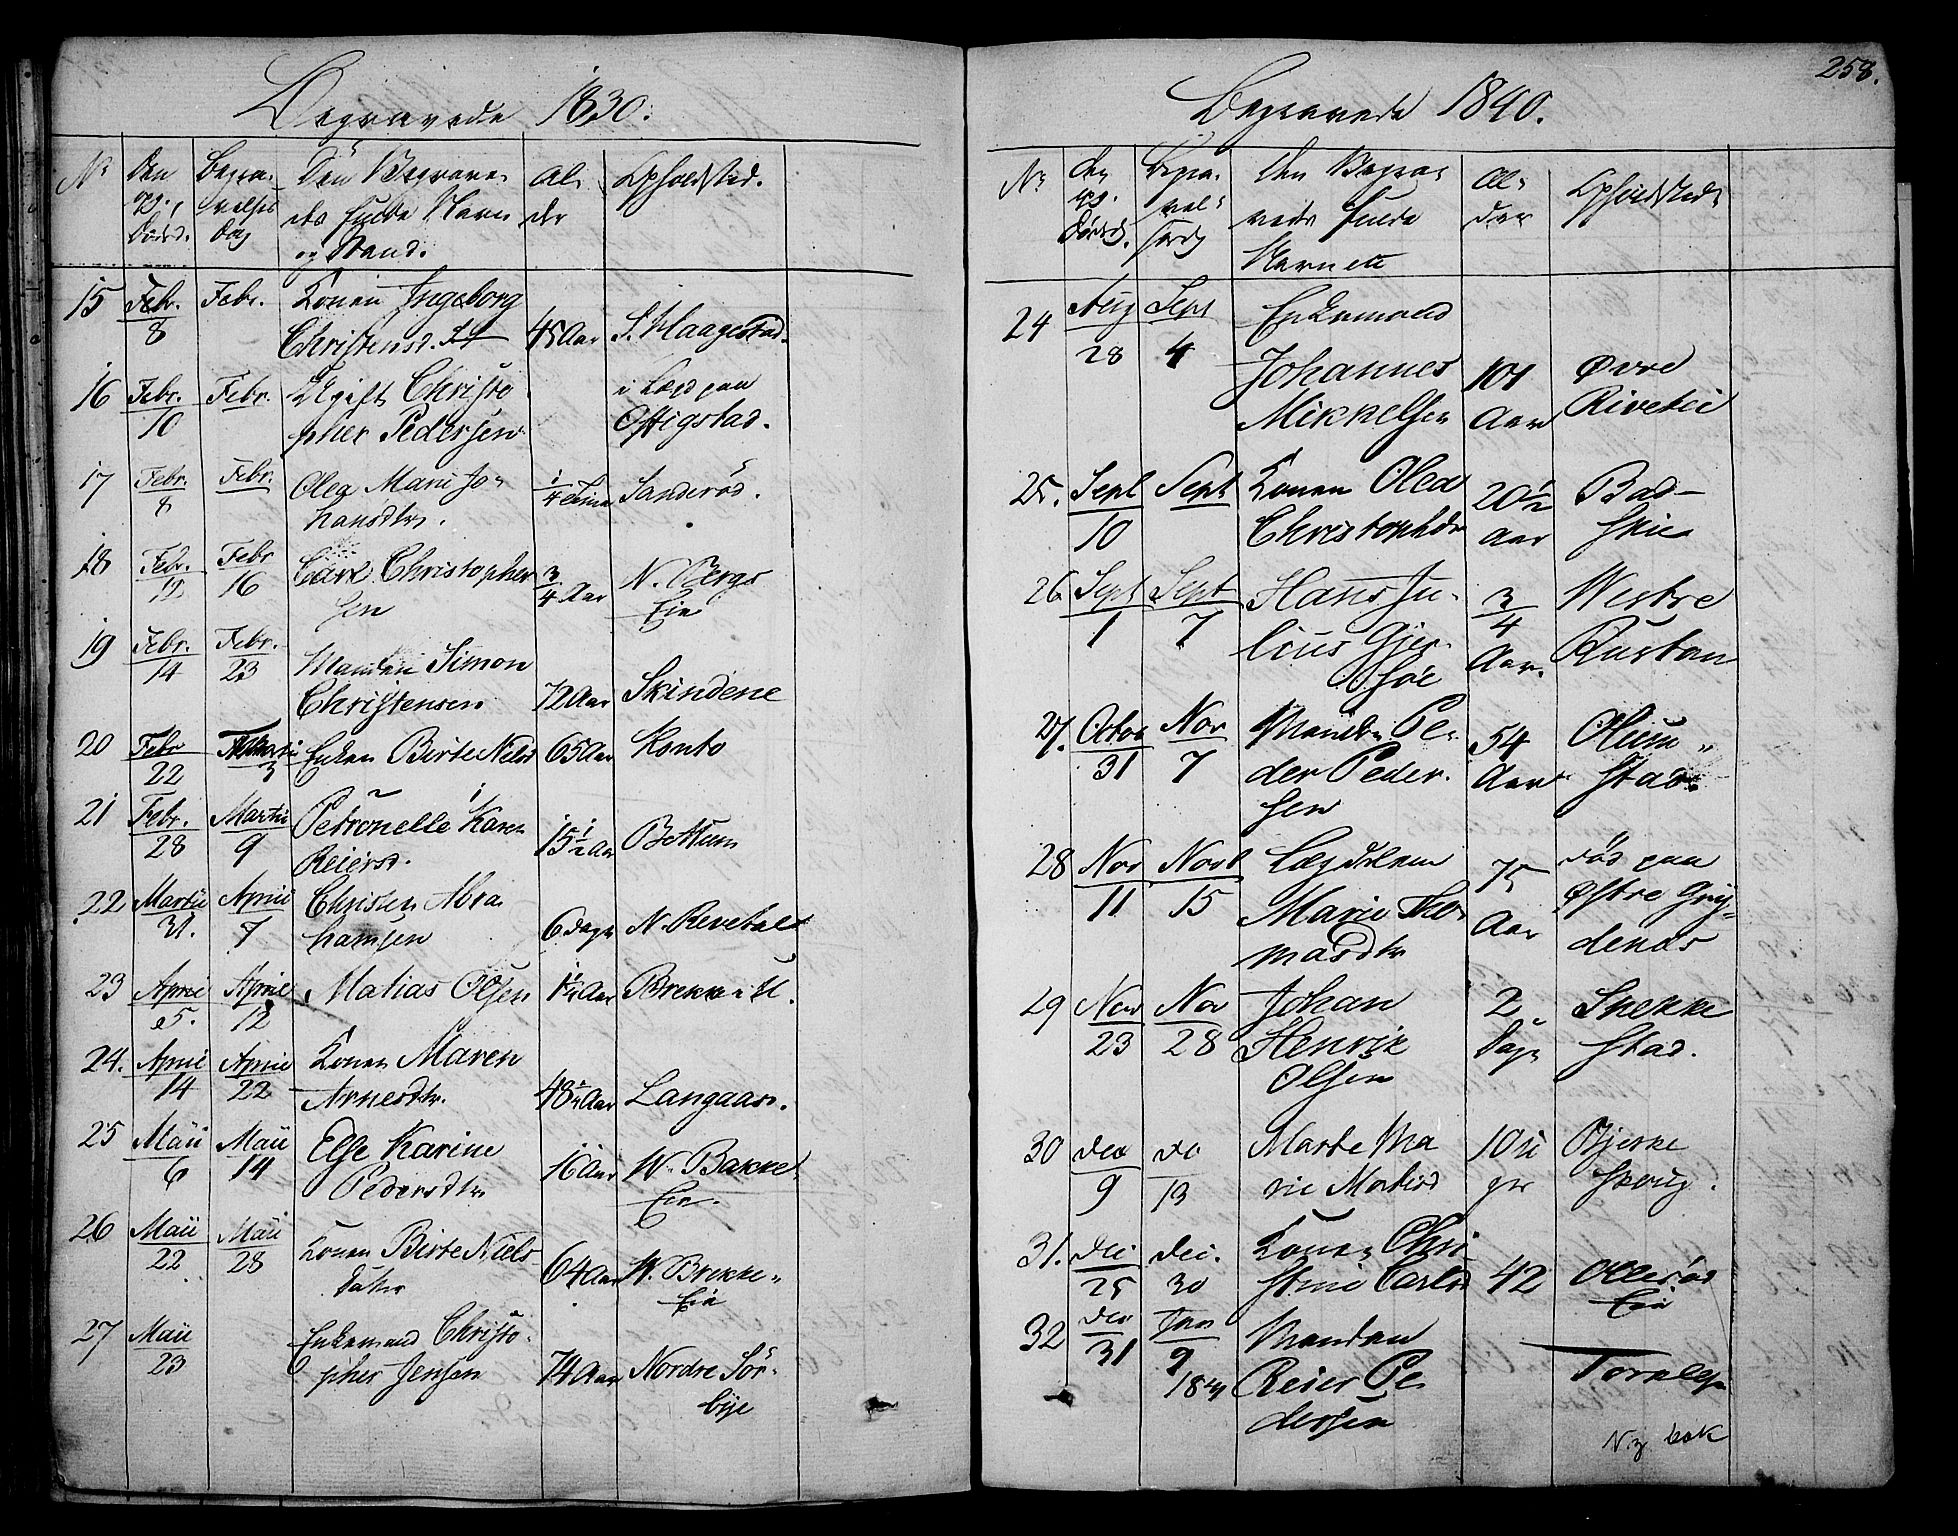 Begravede 1830.
No
Den
Døds d.
Begra-
velses
Dag
Den Begrave-
des fulde Navn
og Stand.
Al-
der
Opholdsted.
15 Febr. 8 Febr. Konen Ingeborg
Christensd. 45 Aar S. Haagestad.
16 Febr. 10 Febr. Ugift Christo
pher Pedersen i Lægd paa
Oftigstad.
17 Febr. 8 Febr. Olea Marie Jo-
hansdtr. 1/4 Time Sanderød.
18 Febr. 12 Febr 16 Carl Christopher
sen 3/4 Aar N. Bergs
Eie
19 Febr. 14 Febr. 23 Manden Simon
Christensen 72 Aar Skindene
20 Febr 22 Marti 3 Enken Birte Nielsd 65 Aar Honto
21 Febr. 28 Martii 9 Petronelle Karen
Reiersd. 15 1/2 Aar Bettum
22 Martii 31. Aprili 7 Christen Abra
hamsen 6 Dage N. Revetal
23 April 5. April 12 Matias Olsen 1 1/4 Aar Brekke
24. April 14 April 22 Konen Maren
Arnesdtr. 48 Aar Langaas.
25 Maii 6 Maii 14 Else Karine
Pedersdtr 16 Aar W. Bakke
Eie.
26 Maii 22 Maii 28 Konen Birte Niels
datter 64 Aar W. Brekke-
Eie
27 Maii 23 Enkemand Christo-
pher Jensen 74 Aar Nordre Sør-
bye
258.
Begravede 1840.
No
den
Døds d.
Begra-
vel-
ses dg
den Begra-
vede fulde
Navn etc
Al-
der
Opholdsted
24 Aug 28 Sept 4 Enkemand
Johannes
Mikkelsen 101
Aar Øvre
Rivetii
25. Sept 10 Sept Konen Olea
Christophdr 20 1/2
Aar Bad-
skie
26 Sept 1 Sept 7 Hans Ju-
lius Gjer
søe 3/4
Aar. Westre
Rustan
27. Octor 31 Nov 7 Manden Pe-
der Peder-
sen 54
Aar Olum-
stad.
28 Nov 11 Novb 15 Lægdslem
Marie Tho-
masdtr 75
Aar død paa
Østre Gry-
denes
29 Nov 23 Nov 28 Johan
Henrik
Olsen 2
Dage Snekke
stad.
30 dec 9 do 13 Marte Ma
rie Matisd 10 U
ger Bjerke
skoug.
31. dec 25 dec. 30 Konen Chri
stine Carlsd 42 Ollerød
Eie
32 dec 31 Jan 9 1841 Manden
Reier Pe
dersen Toralsp
Ny bok